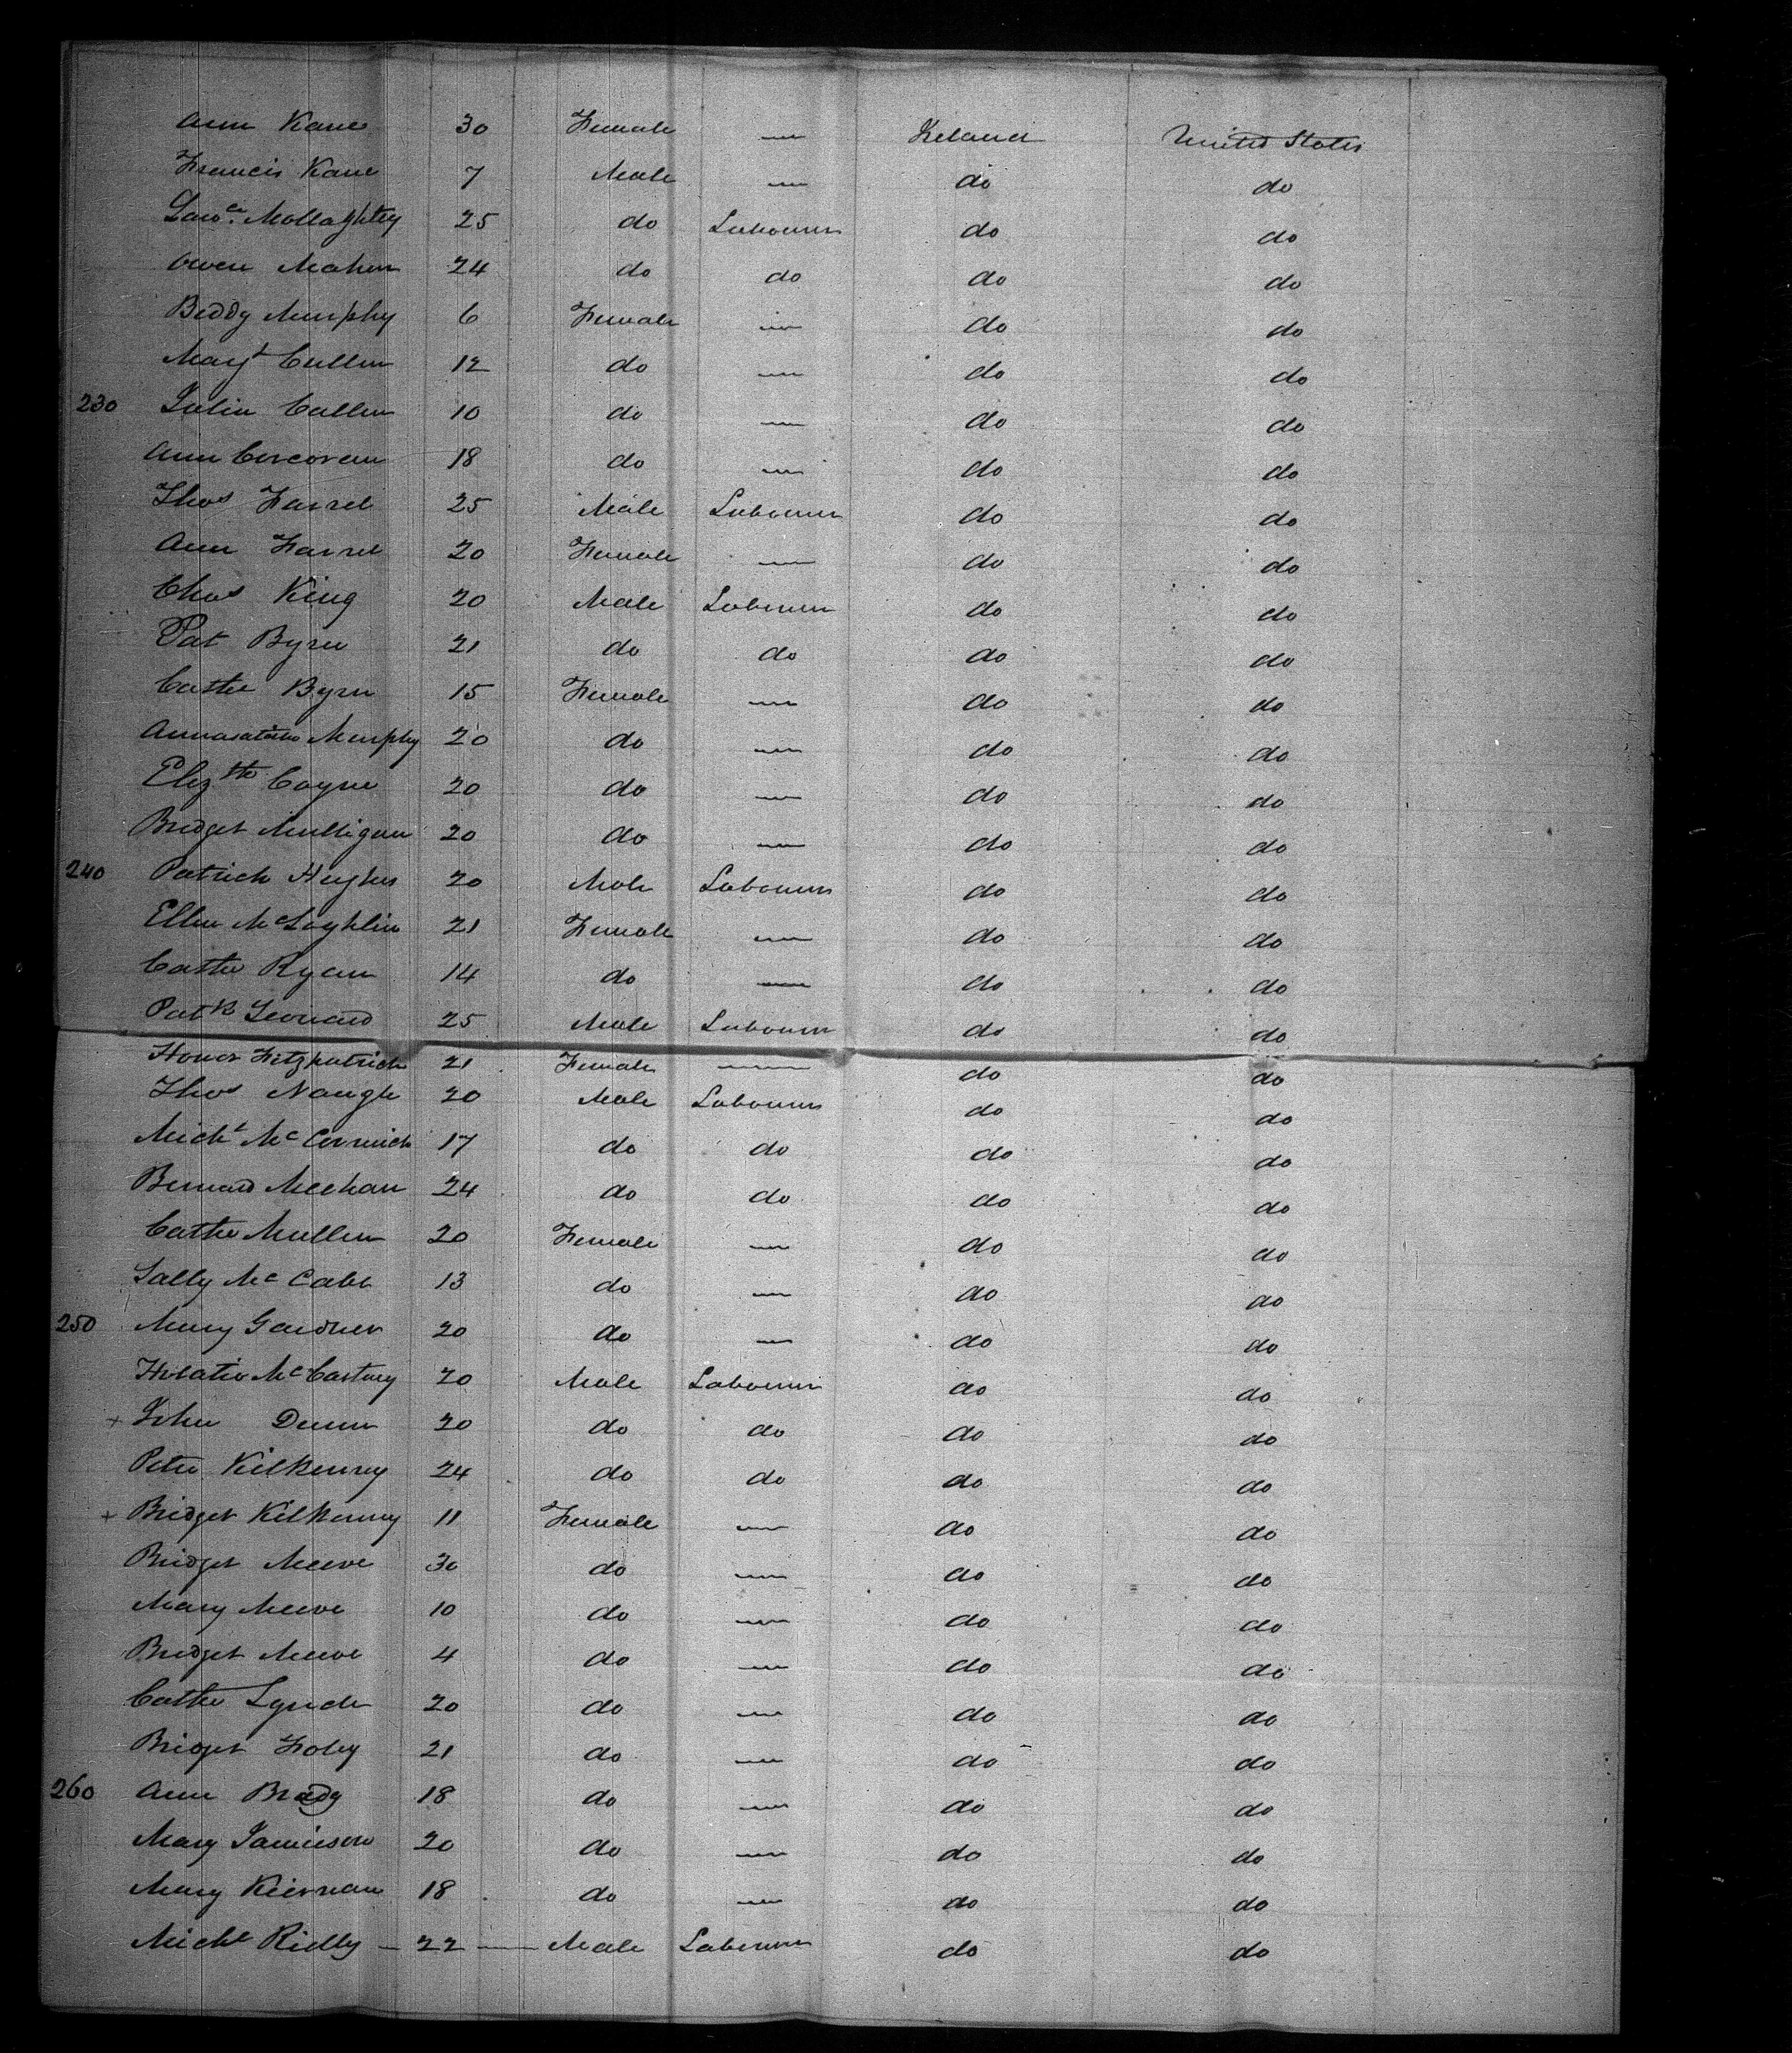 Ann Kane 30 Female — Ireland United States
Francis Kane 7 Male — do do
Lawce. Mollaghtey 25 do Labourer do do
Owen Maher 24 do do do do
Biddy Murphy 6 Female — do do
Margt Cullen 12 do — do do
230 Julia Cullen 10 do — do do
Ann Corcoran 18 do — do do
Thos Farrel 25 Male Labourer do do
Ann Farrel 20 Female — do do
Chas King 20 Male Labourer do do
Pat Byrn 21 do do do do
Cathe Byrn 15 Female — do do
Murphy 20 do — do do
Elizth Coyne 20 do — do do
Bridget Mulligan 20 do — do do
240 Patrick Hughes 20 Male Labourer do do
Ellen McLoghlin 21 Female — do do
Cathe Ryan 14 do — do do
Patk Leonard 25 Male Labourer do do
Honor Fitzpatrick 21 Female — do do
Thos Naugle 20 Male Labourer do do
Michl McCormick 17 do do do do
Bernard Meehan 24 do do do do
Cathe Mullen 20 Female — do do
Sally McCabe 13 do — do do
250 Mary Gardner 20 do — do do
Horatio McCartney 20 Male Labourer do do
+ John Dunn 20 do do do do
Peter Kilkenny 24 do do do do
+ Bridget Kilkenny 11 Female — do do
Bridget Meeve 30 do — do do
Mary Meeve 10 do — do do
Bridget Meeve 4 do — do do
Cathe Lynch 20 do — do do
Bridget Foley 21 do — do do
260 Ann Brady 18 do — do do
Mary Jamieson 20 do — do do
Mary Kiernan 18 do — do do
Michl Rielly — 22 — Male Labourer do do